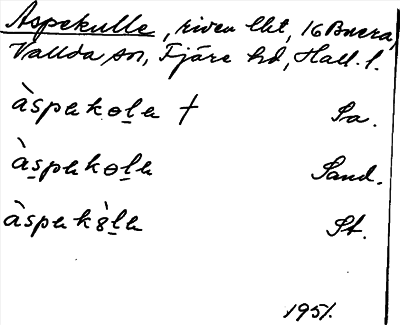 Aspekulle, riven lht, 16 Buera,
Vallda sn, Fjäre hd, Hall. l.
àspekɵlɐ † Sa.
àspekɵlɐ Sand.
àspekɵ̀lɐ St.
1951.